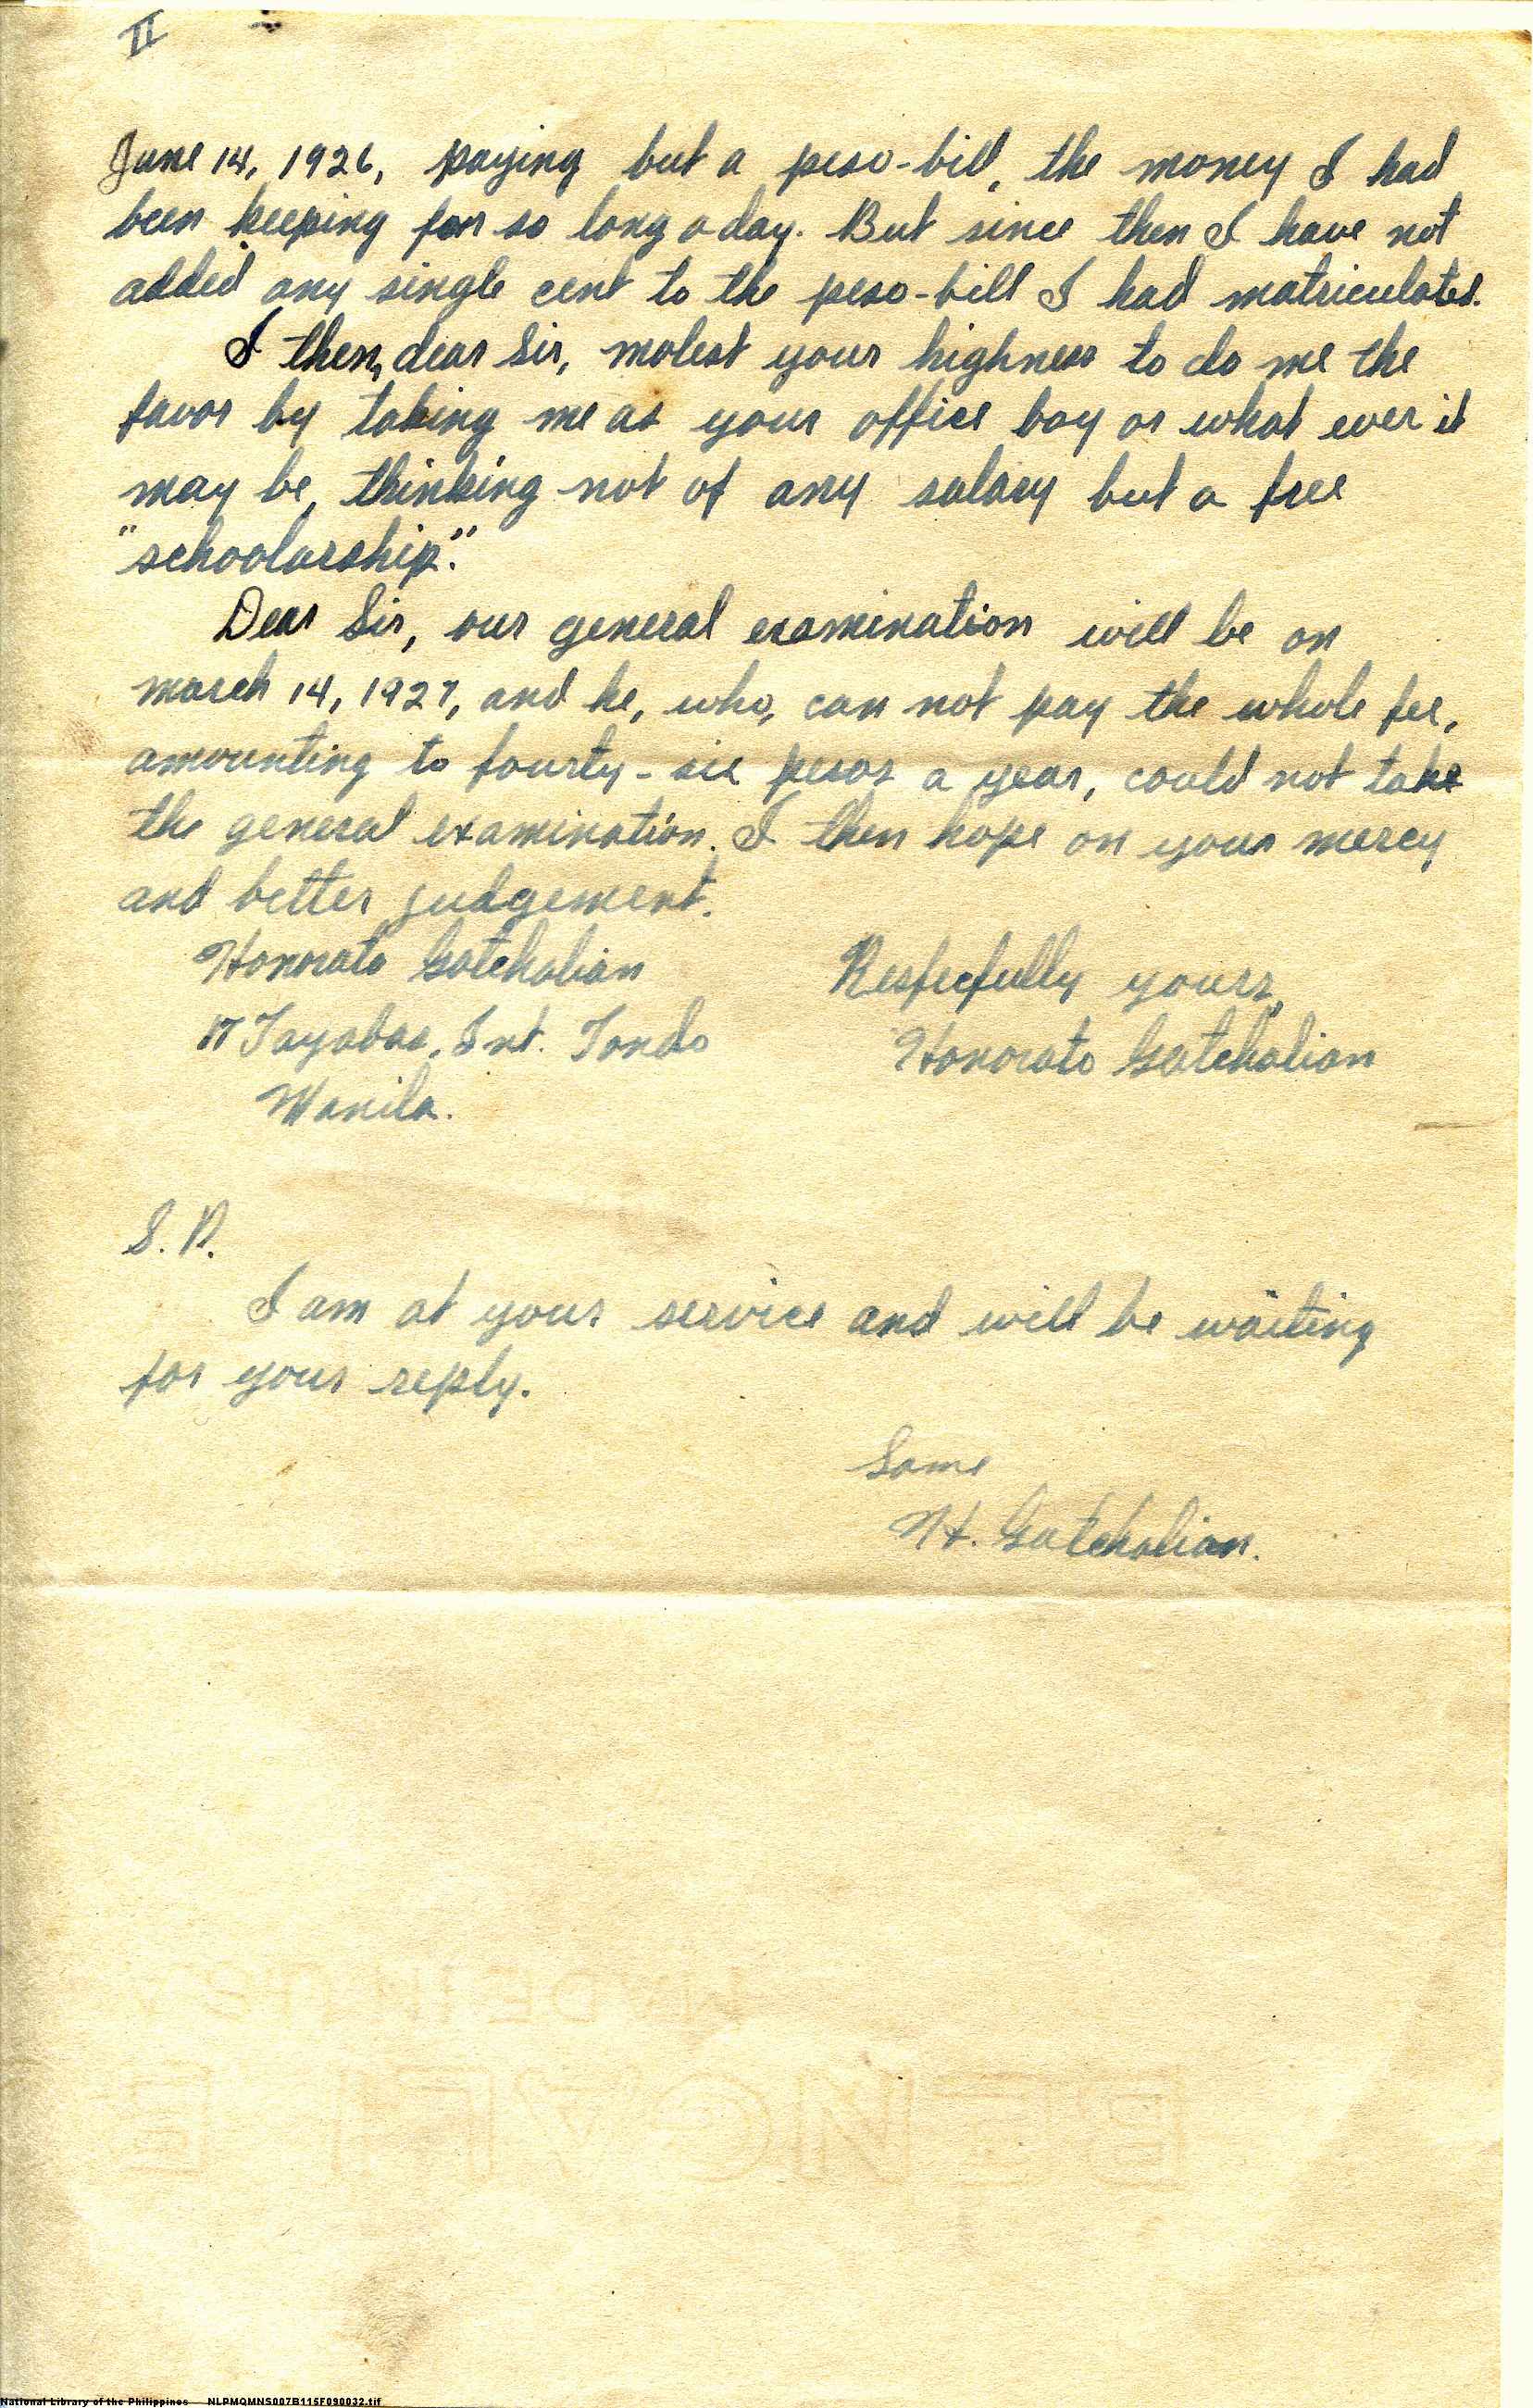 II
June 14, 1926, paying but a peso-bill, the money I had
been keeping for so long a day. But since then I have not
added any single cent to the peso-bill I had matriculated.
I then, dear Sir, molest your highness to do me the
favor by taking me as your office boy or what ever it
may be, thinking not of any salary but a free
"schoolarship".
Dear Sir, our general examination will be on
march 14, 1927, and he, who, can not pay the whole fee,
amounting to fourty-six pesos a year, could not take
the general examination. I then hope on your mercy
and better judgement.
Honorato Gatchalian
17 Tayabas, Int. Tondo
Manila.
Respecfully yours,
Honorato Gatchalian
S. P.
I am at your service and will be waiting
for your reply.
Same
H. Gatchalian.
MADE IN
National Library of the Philippines NLPMQMNS007B115F090032.tif